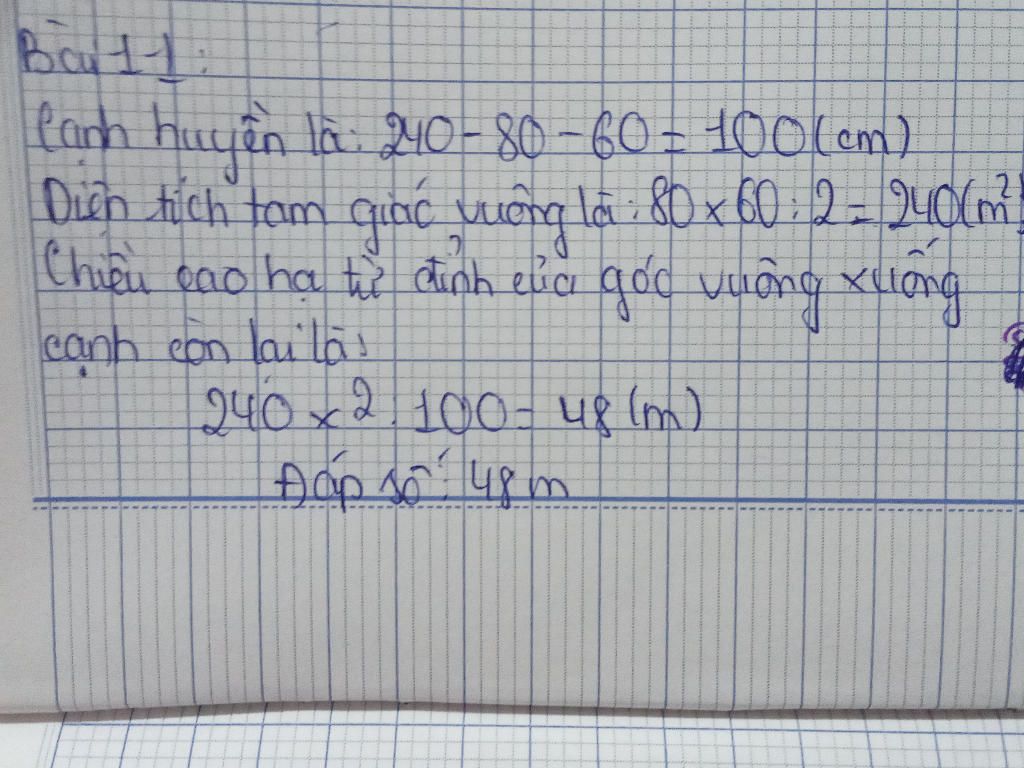 Bài 1-1:
Cạnh huyền là: 240 - 80 - 60 = 100 (cm)
Diện tích tam giác vuông là: 80 x 60 : 2 = 240 (m²)
Chiều cao hạ từ đỉnh của góc vuông xuống
cạnh còn lại là:
240 x 2 : 100 = 48 (m)
Đáp số: 48 m